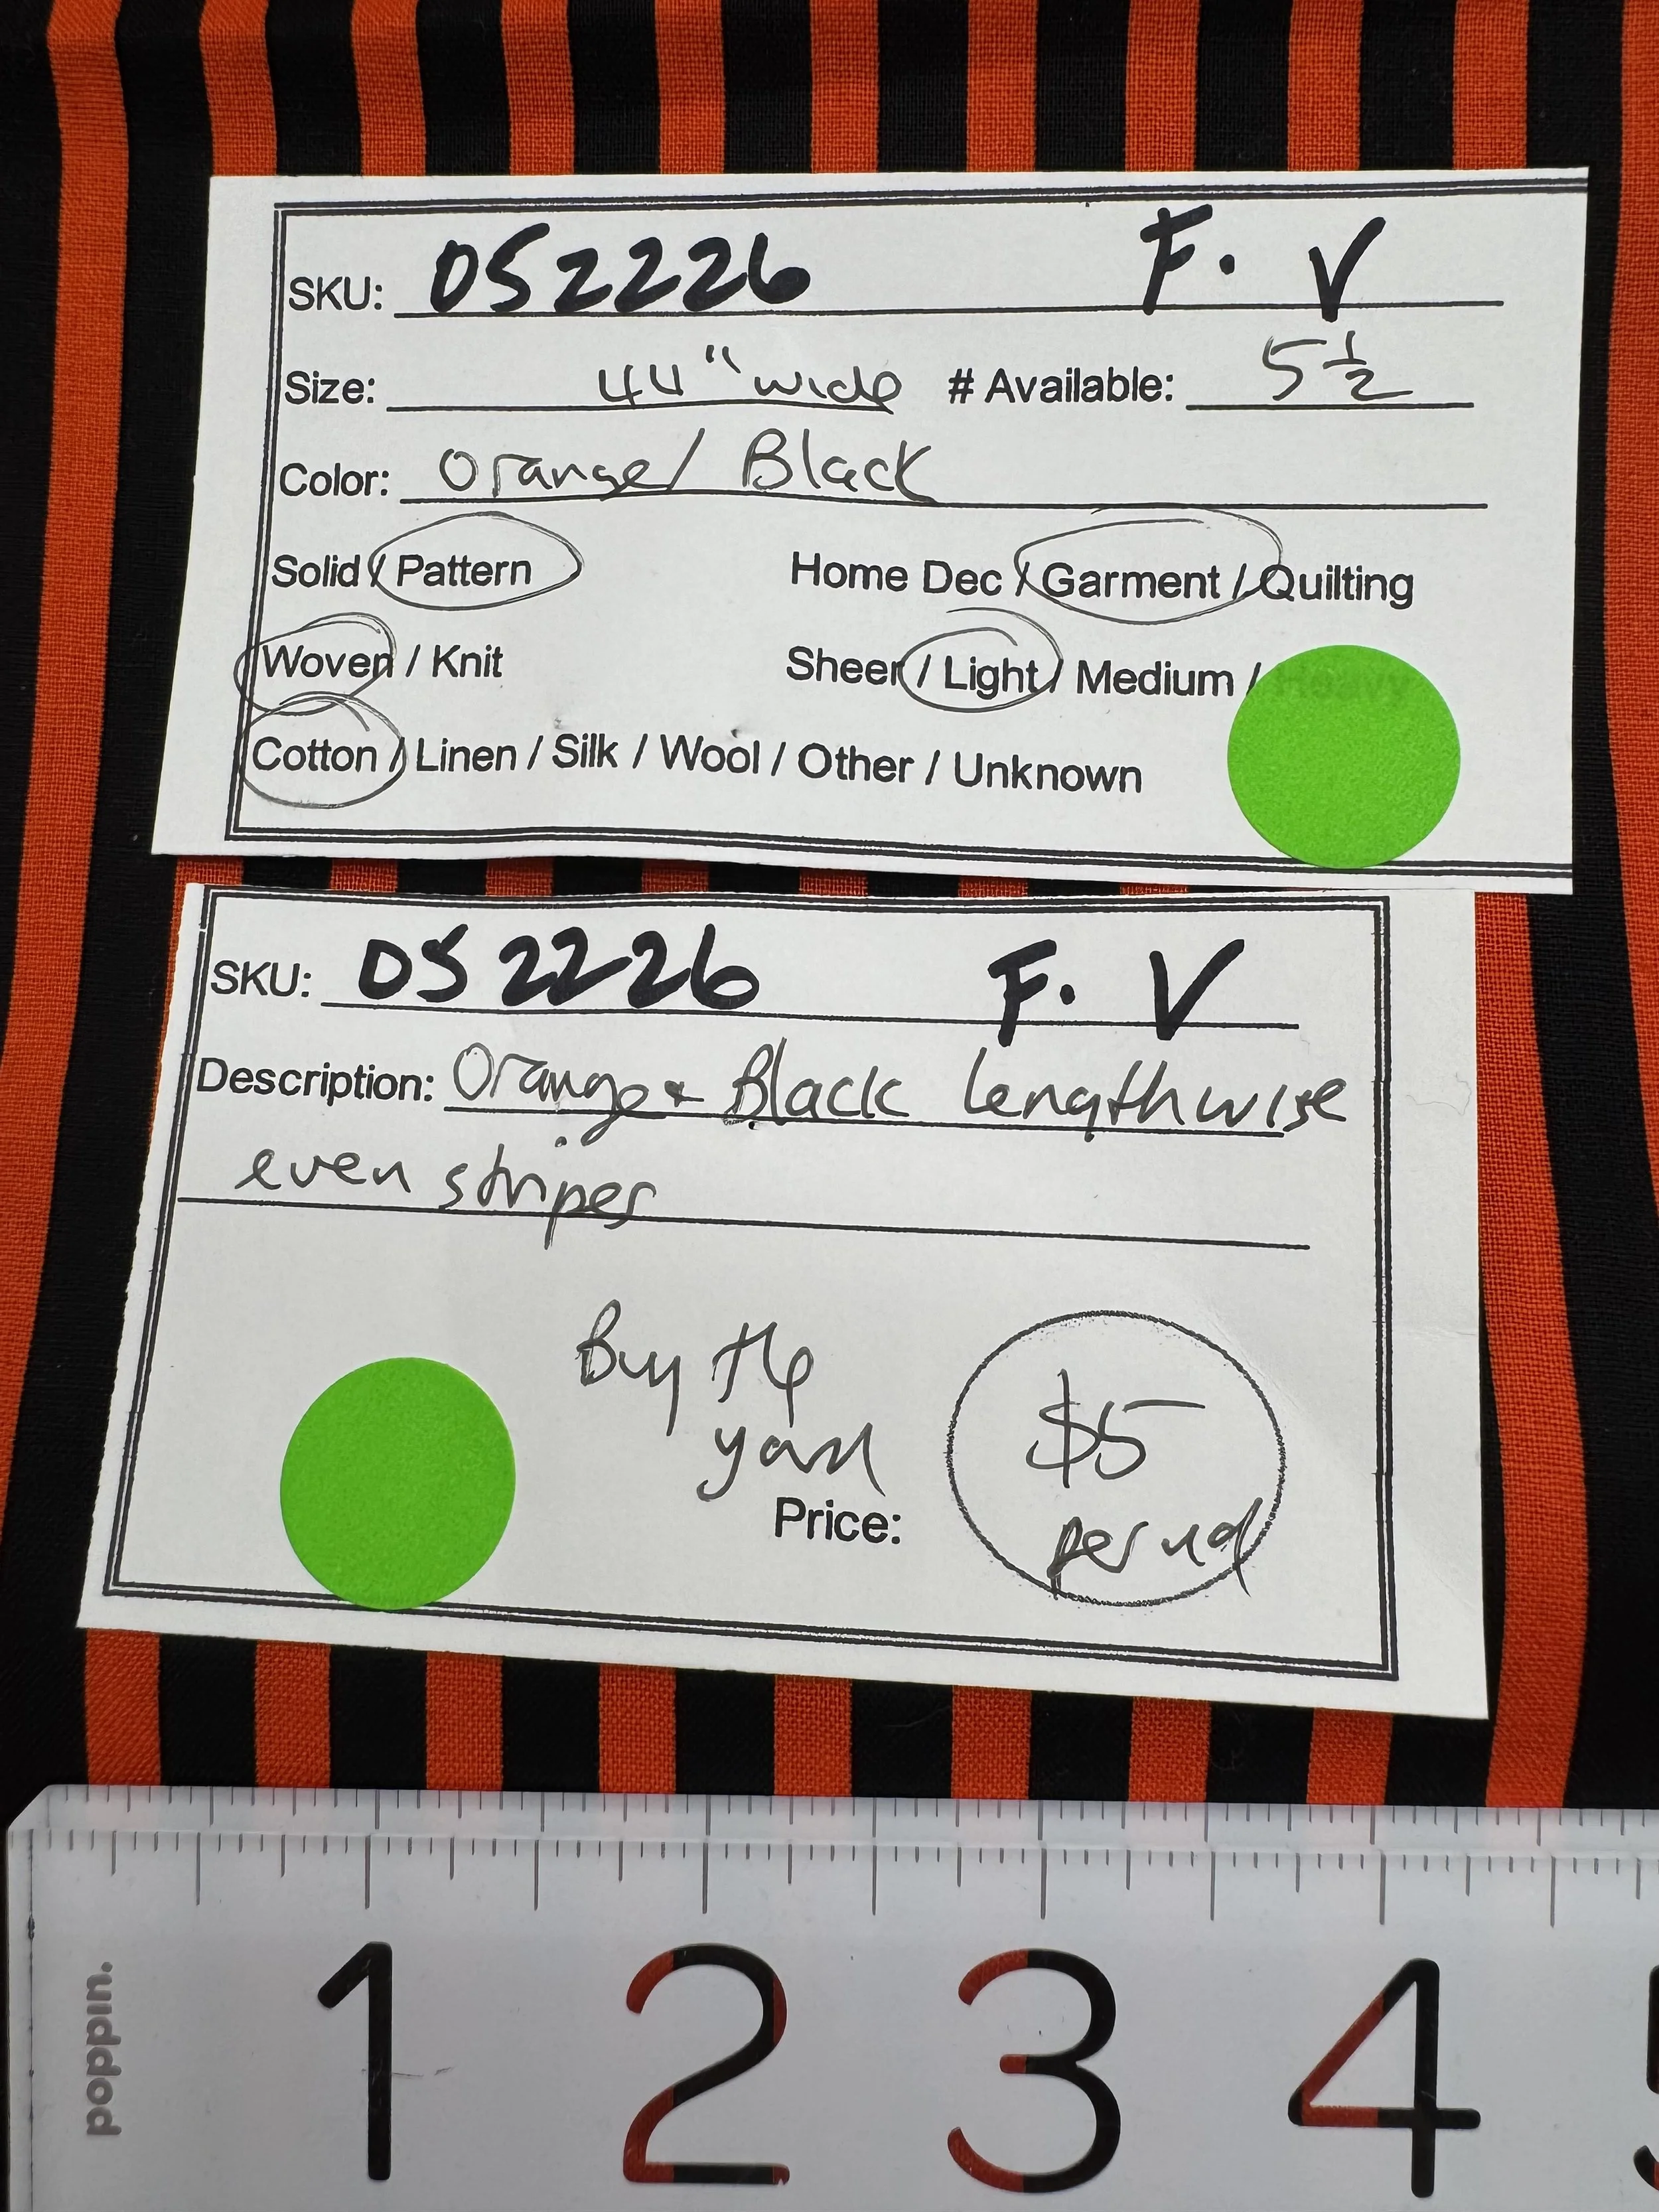 SKU: DS2226 F. V
Size: 44" wide # Available: 5 1/2
Color: Orange/ Black
Solid / Pattern Home Dec / Garment / Quilting
Woven / Knit Sheer / Light / Medium / Heavy
Cotton / Linen / Silk / Wool / Other / Unknown
SKU: DS2226 F. V
Description: Orange & Black lengthwise
even stripes
Buy the
yard
Price: $5
per yd
poppin.
1 2 3 4 5